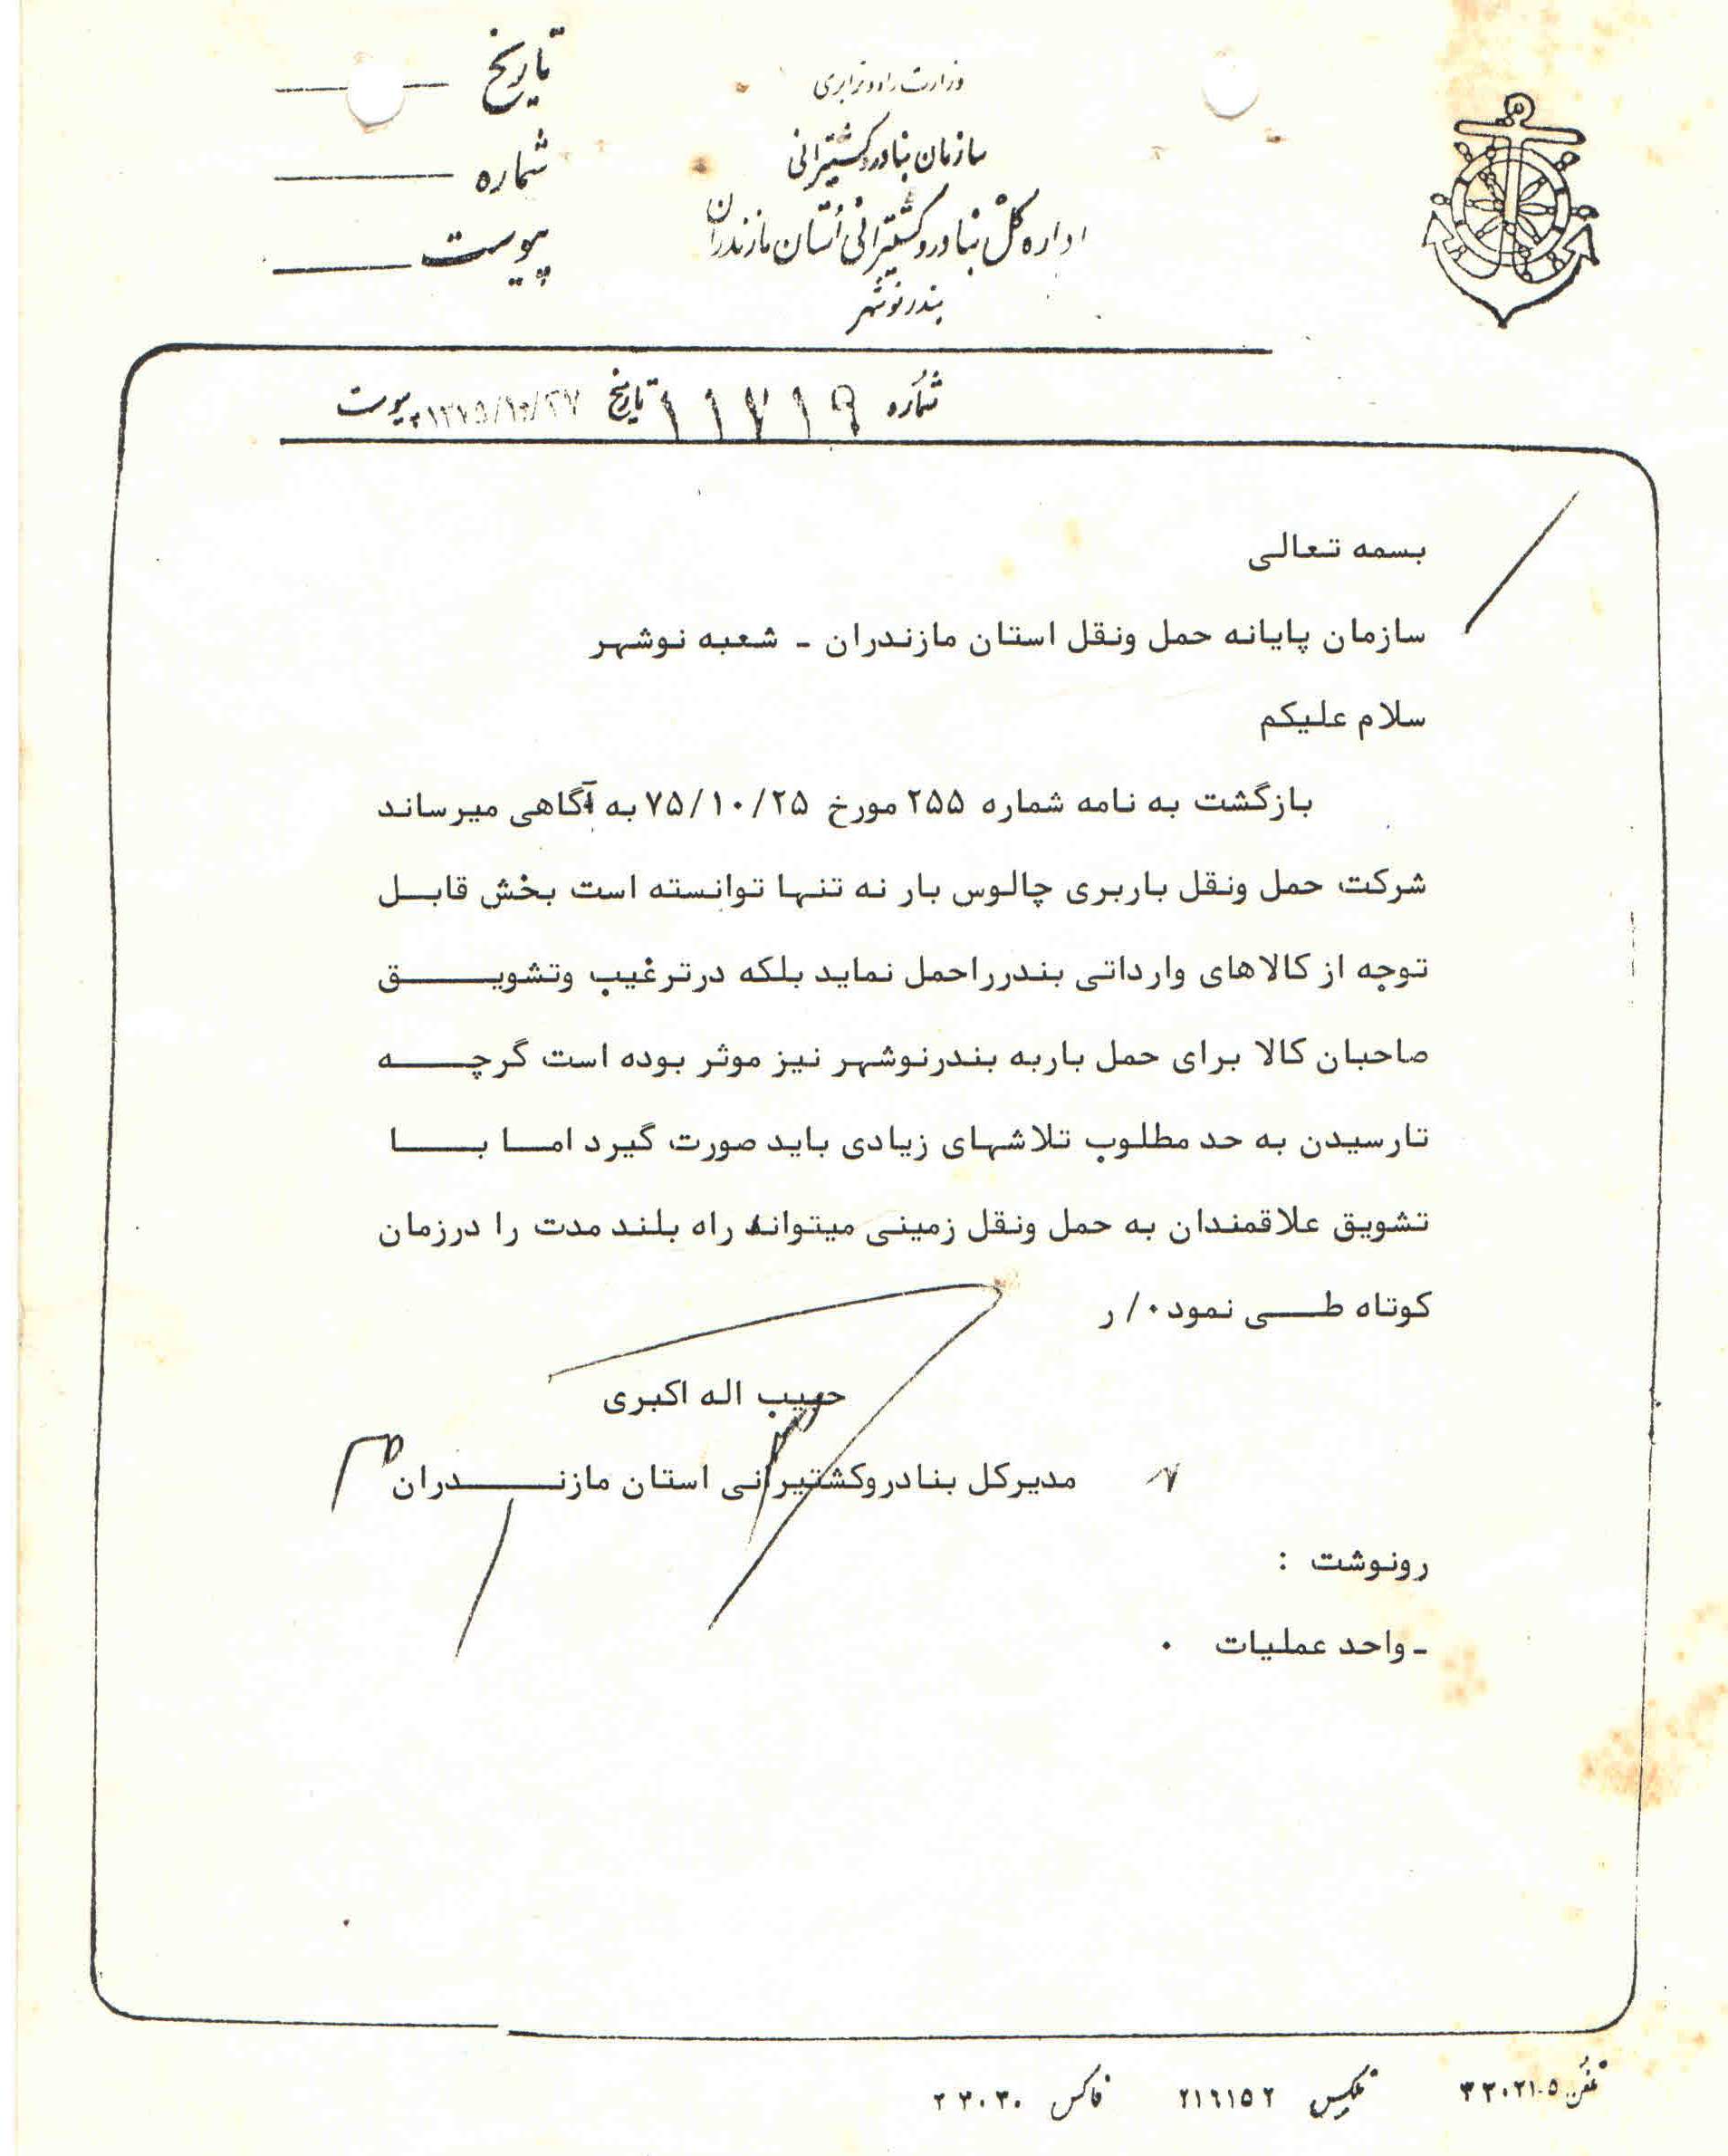 تاریخ
شماره
پیوست
وزارت راه و ترابری
سازمان بنادر و کشتیرانی
اداره کل بنادر و کشتیرانی استان مازندران
بندر نوشهر
شماره ۱۱۷۱۹ تاریخ ۱۳۷۵/۱۰/۲۷ پیوست
بسمه تعالی
سازمان پایانه حمل ونقل استان مازندران - شعبه نوشهر
سلام علیکم
بازگشت به نامه شماره ۲۵۵ مورخ ۷۵/۱۰/۲۵ به آگاهی میرساند
شرکت حمل ونقل باربری چالوس بار نه تنها توانسته است بخش قابل
توجه از کالاهای وارداتی بندرراحمل نماید بلکه درترغیب وتشویق
صاحبان کالا برای حمل باربه بندرنوشهر نیز موثر بوده است گرچه
تارسیدن به حد مطلوب تلاشهای زیادی باید صورت گیرد اما با
تشویق علاقمندان به حمل ونقل زمینی میتواند راه بلند مدت را درزمان
کوتاه طی نمود۰/ر
حبیب اله اکبری
مدیرکل بنادروکشتیرانی استان مازندران
رونوشت :
- واحد عملیات ۰
تلفن ۵-۳۳۰۲۱ تلکس ۲۱۶۱۵۲ فاکس ۲۳۰۳۰